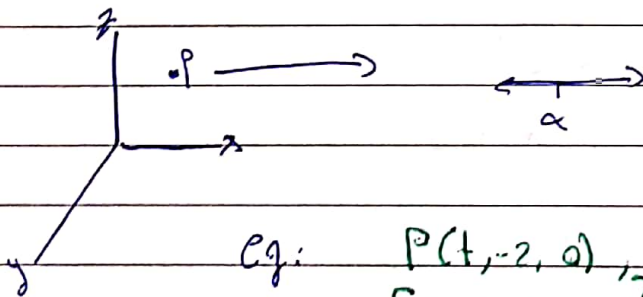 z
.P
x
α
y
eg: P(t, -2, 0) ,